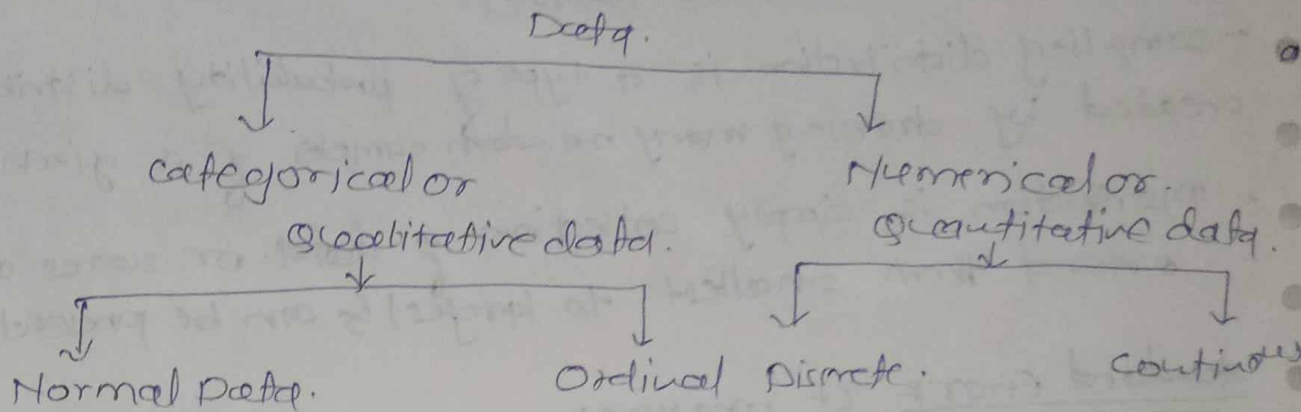 Data.
Categorical or
Qualitative data.
Numerical or.
Quantitative data.
Normal Data.
Ordinal
Discrete.
Continous